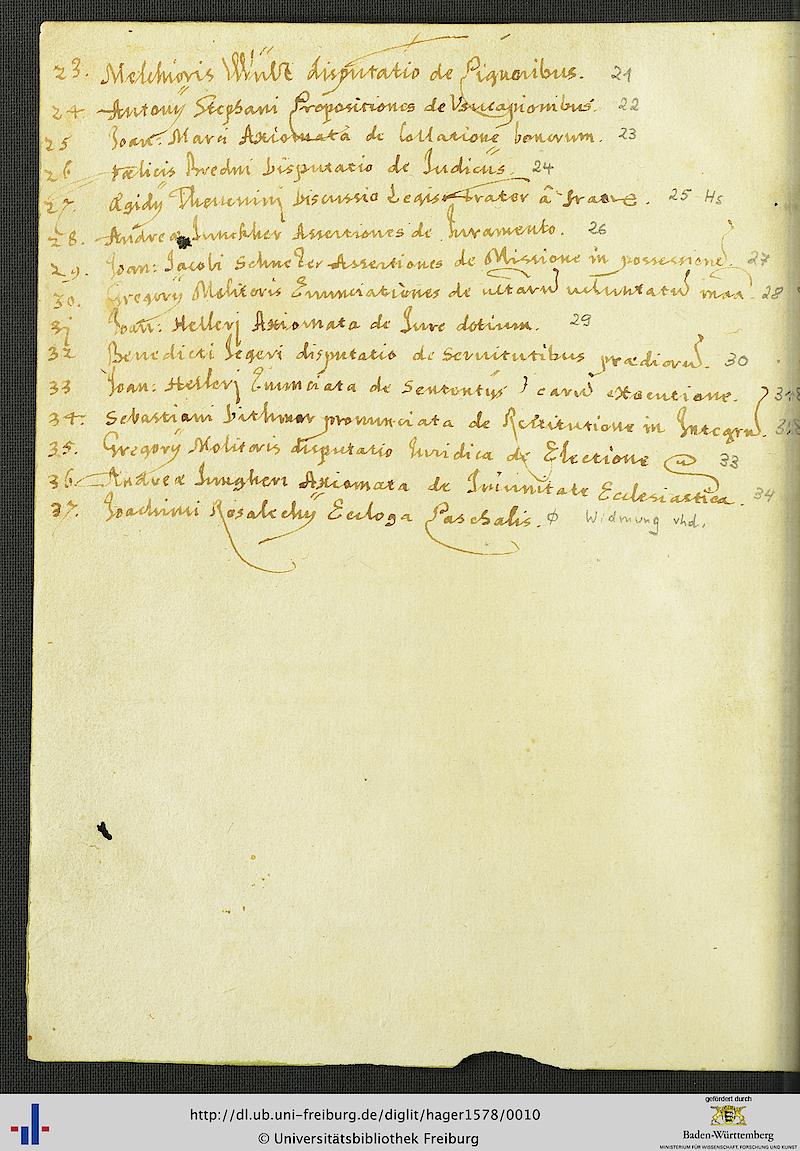 23. Melchioris Wült disputatio de Pignoribus. 21
24. Antonij Stephani Propositiones de Vsucapionibus. 22
25 Joan: Marci Axiomata de Collatione bonorum. 23
26 Fælicis Bredni Disputatio de Judicijs. 24
27. Ægidij Theuenini Discussio Legis frater â fratre. 25 Hs
28. Andreæ Junckher Assertiones de Juramento. 26
29. Joan: Jacobi Assertiones de Missione in possessione. 27
30. Gregorij Molitoris Enunciationes de voluntatū 28
31 Joan: Hellerj Axiomata de Jure dotium. 29
32 Benedicti Jegeri disputatio de Seruitutibus prædiorū. 30
33 Joan: Hellerj Enunciata de Sententijs carū executione.
34. Sebastiani Dithmar pronunciata de Restitutione in Integrū.
35. Gregorij Molitoris disputatio Juridica de Electione 33
36. Andreæ Jungheri Axiomata de Immunitate Ecclesiastica. 34
37. Joachimi Rosalechij Ecloga Paschalis. Ø Widmung vhd.
http://dl.ub.uni-freiburg.de/diglit/hager1578/0010
© Universitätsbibliothek Freiburg
gefördert durch
Baden-Württemberg
MINISTERIUM FÜR WISSENSCHAFT, FORSCHUNG UND KUNST